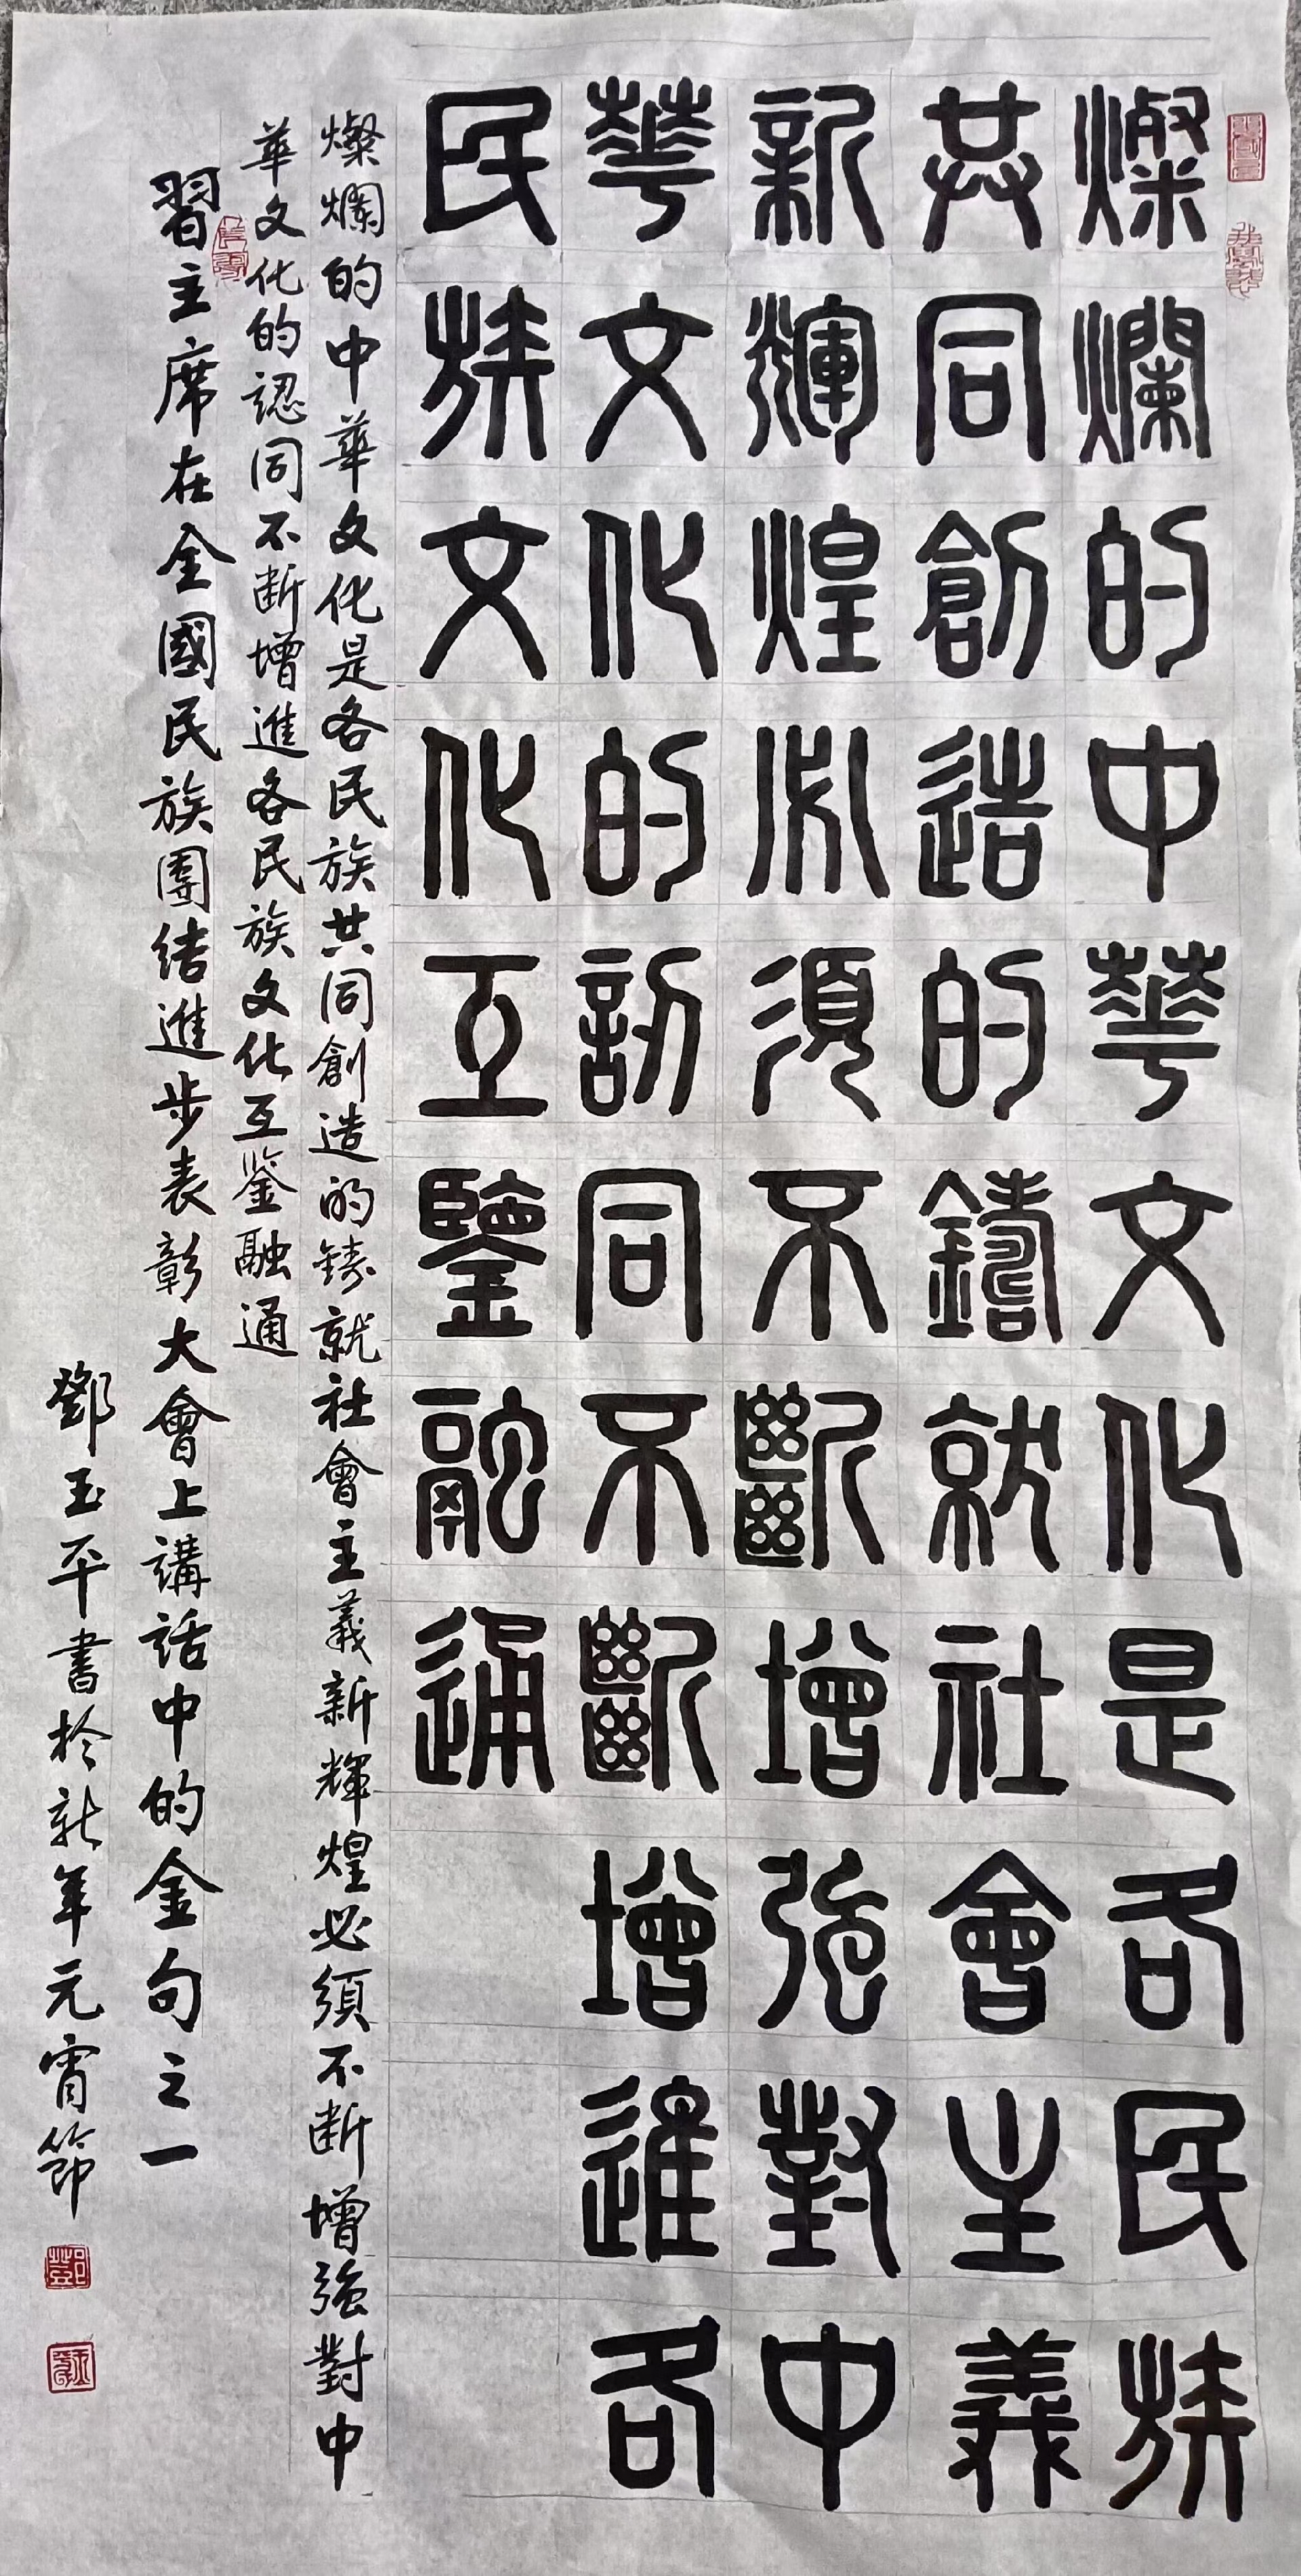 燦爛的中華文化是各民族
共同創造的鑄就社會主義
新輝煌必須不斷增強對中
華文化的認同不斷增進各
民族文化互鑒融通
燦爛的中華文化是各民族共同創造的鑄就社會主義新輝煌必須不断增強對中
華文化的認同不断增進各民族文化互鉴融通
習主席在全國民族團结進步表彰大會上講話中的金句之一
鄧玉平書於新年元宵節